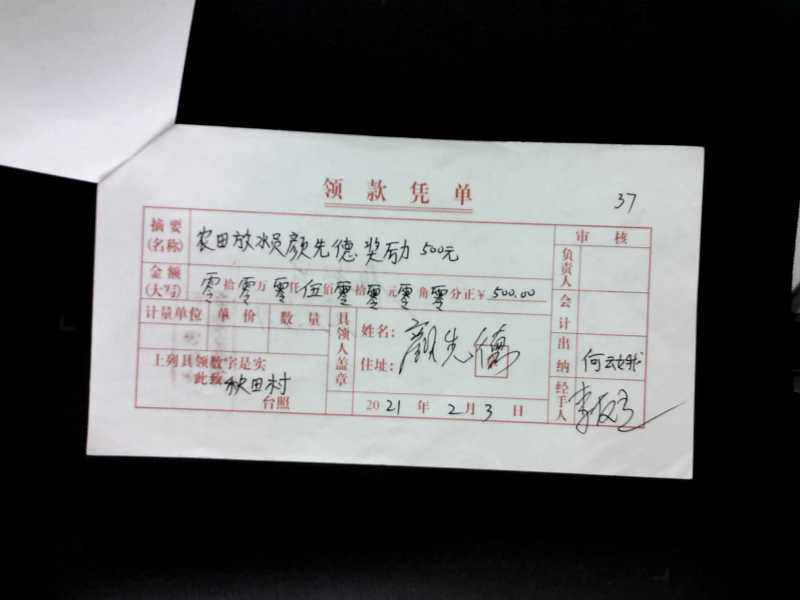 领款凭单
37
摘要(名称) 农田放水员颜先德奖励500元
审核
金额(大写) 零拾零万零仟伍佰零拾零元零角零分正¥500.00
负责人
计量单位 单价 数量
会计
上列具领数字是实
此致 秋田村
台照
具领人盖章
姓名: 颜先德
住址:
2021年2月3日
出纳 何云娥
经手人